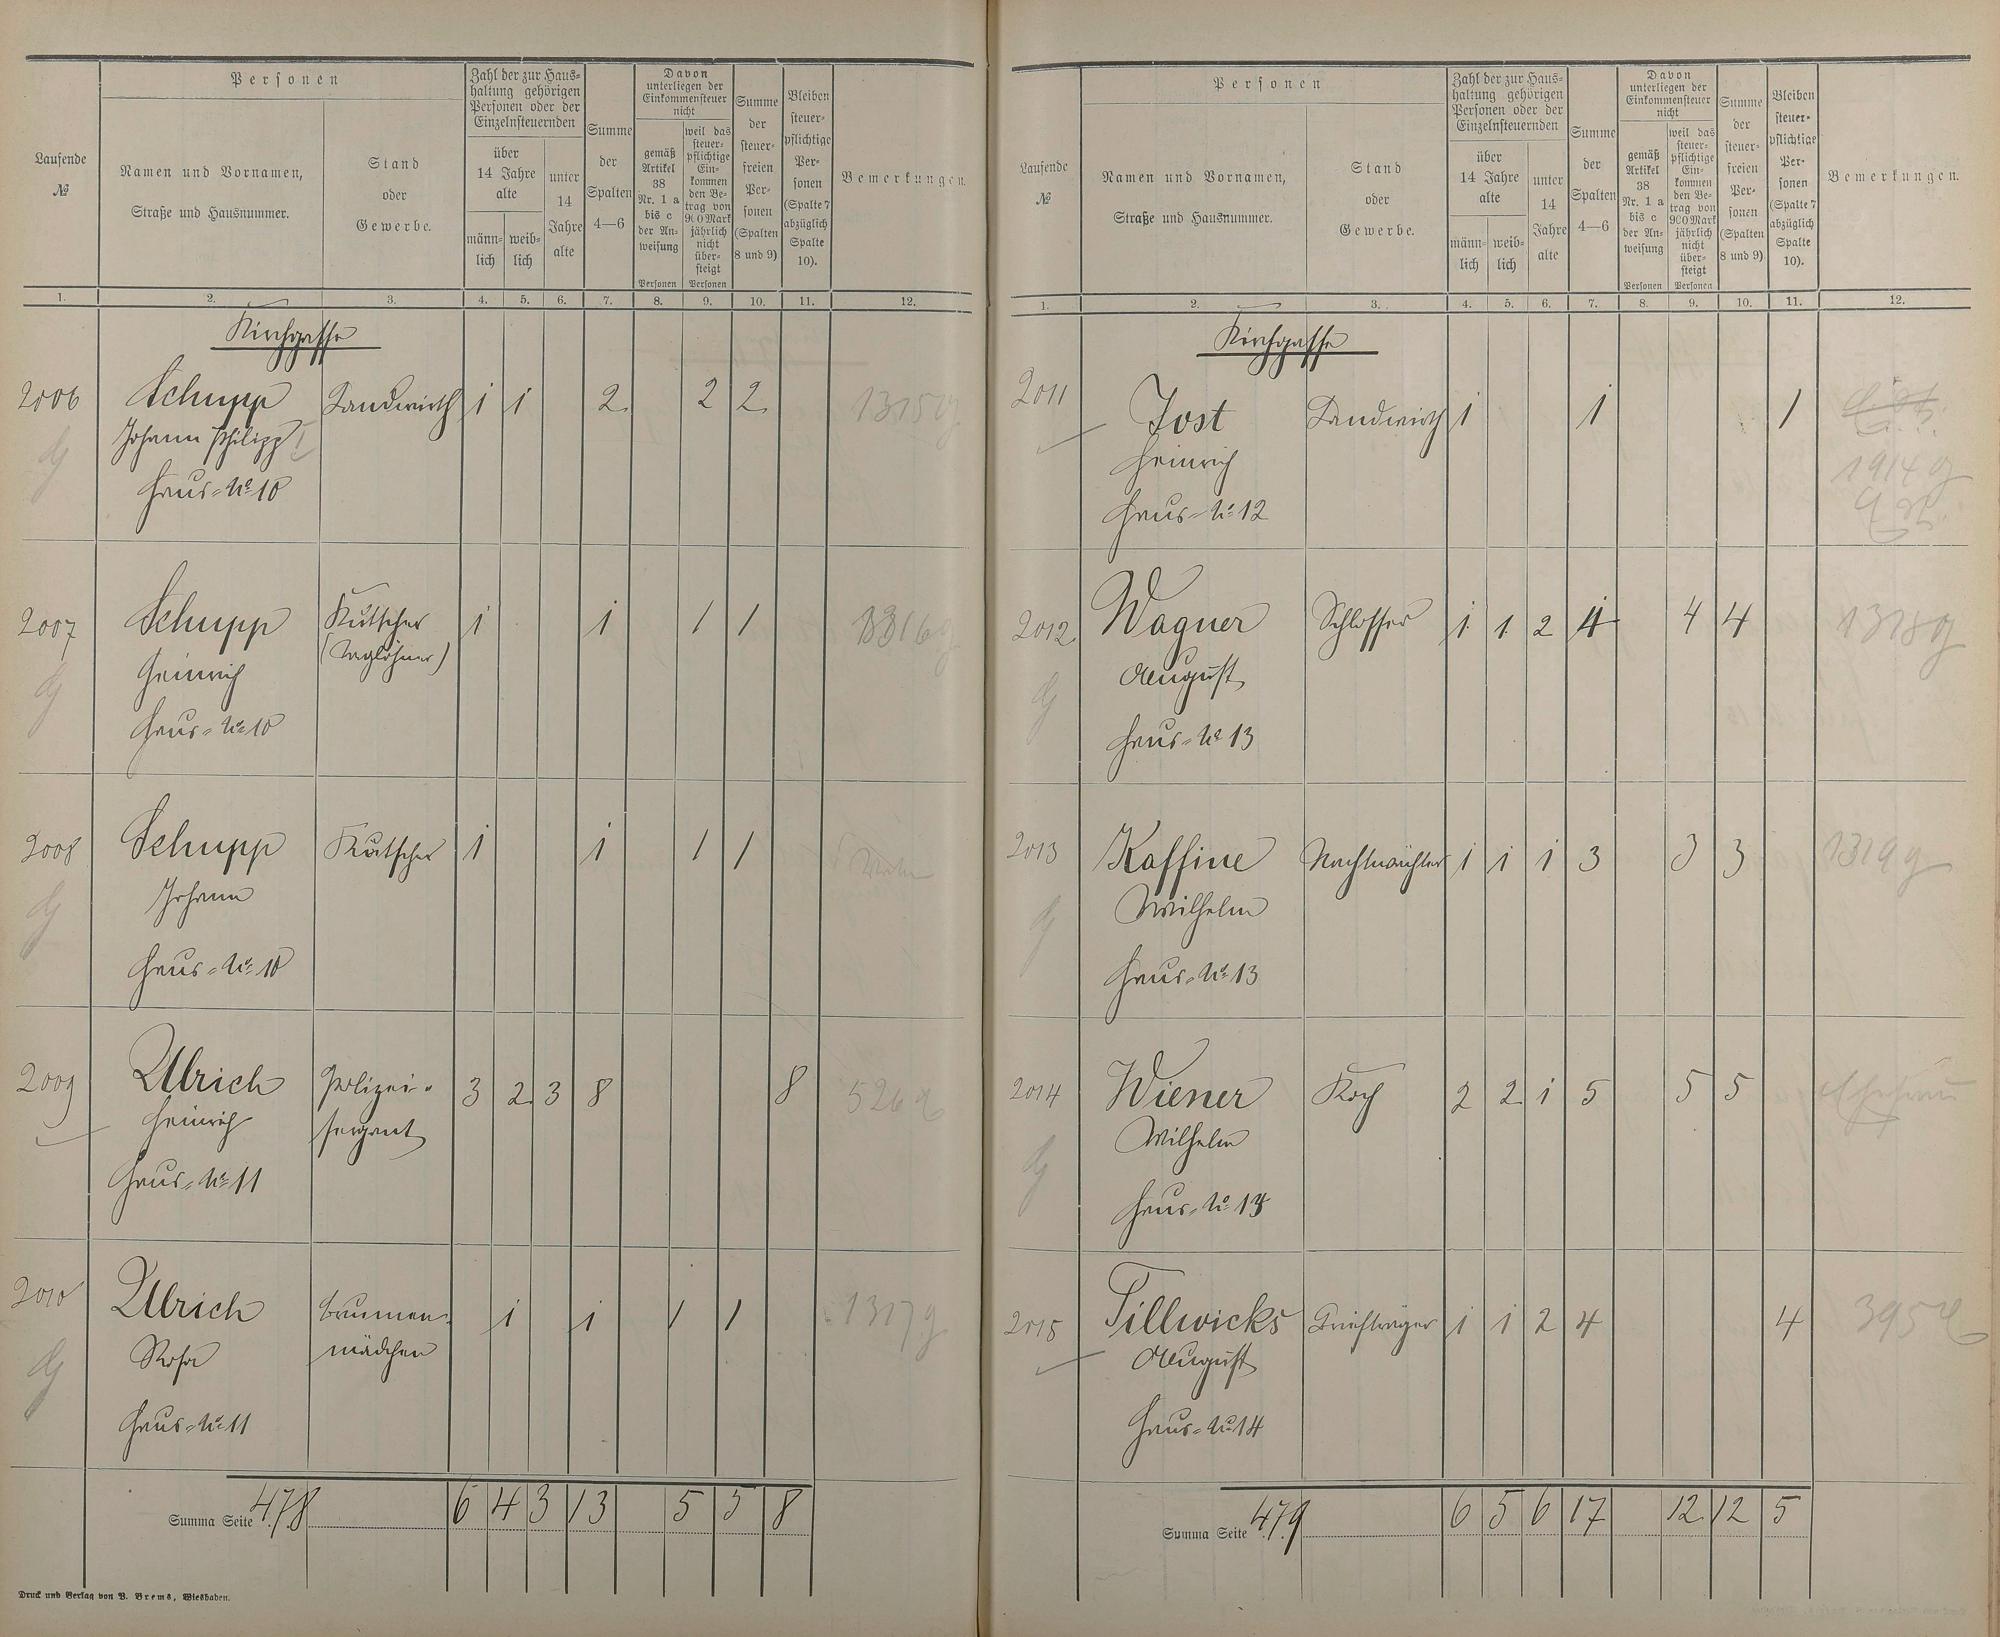 Laufende
№
Personen
Namen und Vornamen,
Straße und Hausnummer.
Stand
oder
Gewerbe.
Zahl der zur Haus-
haltung gehörigen
Personen oder der
Einzelnsteuernden
über
14 Jahre
alte
männ-
lich
weib-
lich
unter
14
Jahre
alte
Summe
der
Spalten
4—6
Davon
unterliegen der
Einkommensteuer
nicht
gemäß
Artikel
38
Nr. 1 a
bis c
der An-
weisung
Personen
weil das
steuer-
pflichtige
Ein-
kommen
den Be-
trag von
900 Mark
jährlich
nicht
über-
steigt
Personen
Summe
der
steuer-
freien
Per-
sonen
(Spalten
8 und 9)
Bleiben
steuer-
pflichtige
Per-
sonen
(Spalte 7
abzüglich
Spalte
10).
Bemerkungen.
1. 2. 3. 4. 5. 6. 7. 8. 9. 10. 11. 12.
Kirchgasse
2006 Schupp Landwirth 1 1 2. 2 2. 1315 g
Johann Philipp I
Haus-No 10
2007 Schupp Kutscher 1 1 1 1 1316 g
(Taglöhner)
Heinrich
Haus-No 10
2008 Schupp Kutscher 1 1 1 1
Johann
Haus-No 10
2009 Ulrich Polizei- 3 2. 3 8 8 526
Heinrich sergant
Haus-No 11
2010 Ulrich Brunnen- 1 1 1 1 1317 g
Rosa mädchen
Haus-No 11
Summa Seite 478 6 4 3 13 5 5 8
Druck und Verlag von P. Brems, Wiesbaden.
Laufende
№
Personen
Namen und Vornamen,
Straße und Hausnummer.
Stand
oder
Gewerbe.
Zahl der zur Haus-
haltung gehörigen
Personen oder der
Einzelnsteuernden
über
14 Jahre
alte
männ-
lich
weib-
lich
unter
14
Jahre
alte
Summe
der
Spalten
4—6
Davon
unterliegen der
Einkommensteuer
nicht
gemäß
Artikel
38
Nr. 1 a
bis c
der An-
weisung
Personen
weil das
steuer-
pflichtige
Ein-
kommen
den Be-
trag von
900 Mark
jährlich
nicht
über-
steigt
Personen
Summe
der
steuer-
freien
Per-
sonen
(Spalten
8 und 9)
Bleiben
steuer-
pflichtige
Per-
sonen
(Spalte 7
abzüglich
Spalte
10).
Bemerkungen.
1. 2. 3. 4. 5. 6. 7. 8. 9. 10. 11. 12.
Kirchgasse
2011 Jost Landwirth 1 1 1
Heinrich 1914 g
Haus-No 12
2012. Wagner Schlosser 1 1 2 4 4 4 1318 g
August
Haus-No 13
2013 Kaffine Nachtwächter 1 1 1 3 3 3 1319 g
Wilhelm
Haus-No 13
2014 Wiener Koch 2 2 1 5 5 5 Ehefrau
Wilhelm
Haus-No 13
2015 Tillwicks Briefträger 1 1 2 4 4 395
August
Haus-No 14
Summa Seite 479 6 5 6 17 12 12 5